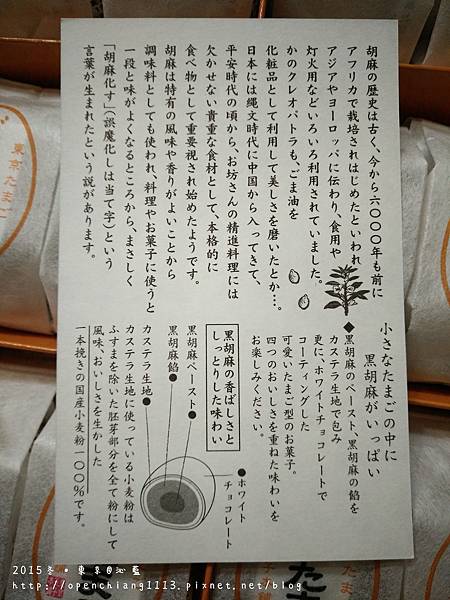 胡麻の歴史は古く、今から六〇〇〇年も前に
アフリカで栽培されはじめたといわれ
アジアやヨーロッパに伝わり、食用や
灯火用などいろいろ利用されていました。
かのクレオパトラも、ごま油を
化粧品として利用して美しさを磨いたとか…。
日本には縄文時代に中国から入ってきて、
平安時代の頃から、お坊さんの精進料理には
欠かせない貴重な食材として、本格的に
食べ物として重要視され始めたようです。
胡麻は特有の風味や香りがよいことから
調味料としても使われ、料理やお菓子に使うと
一段と味がよくなるところから、まさしく
「胡麻化す」(誤魔化しは当て字)という
言葉が生まれたという説があります。
小さなたまごの中に
黒胡麻がいっぱい
◆黒胡麻のペースト、黒胡麻の餡を
カステラ生地で包み
更に、ホワイトチョコレートで
コーティングした
可愛いたまご型のお菓子。
四つのおいしさを重ねた味わいを
お楽しみください。
黒胡麻の香ばしさと
しっとりした味わい
黒胡麻ペースト●
黒胡麻餡●
カステラ生地●
●ホワイト
チョコレート
カステラ生地に使っている小麦粉は
ふすまを除いた胚芽部分を全て粉にして
風味、おいしさを生かした
一本挽きの国産小麦粉一〇〇％です。
東京たまご
ご
たま
た
2015冬•東京@沁藍
http://openchiang1113.pixnet.net/blog